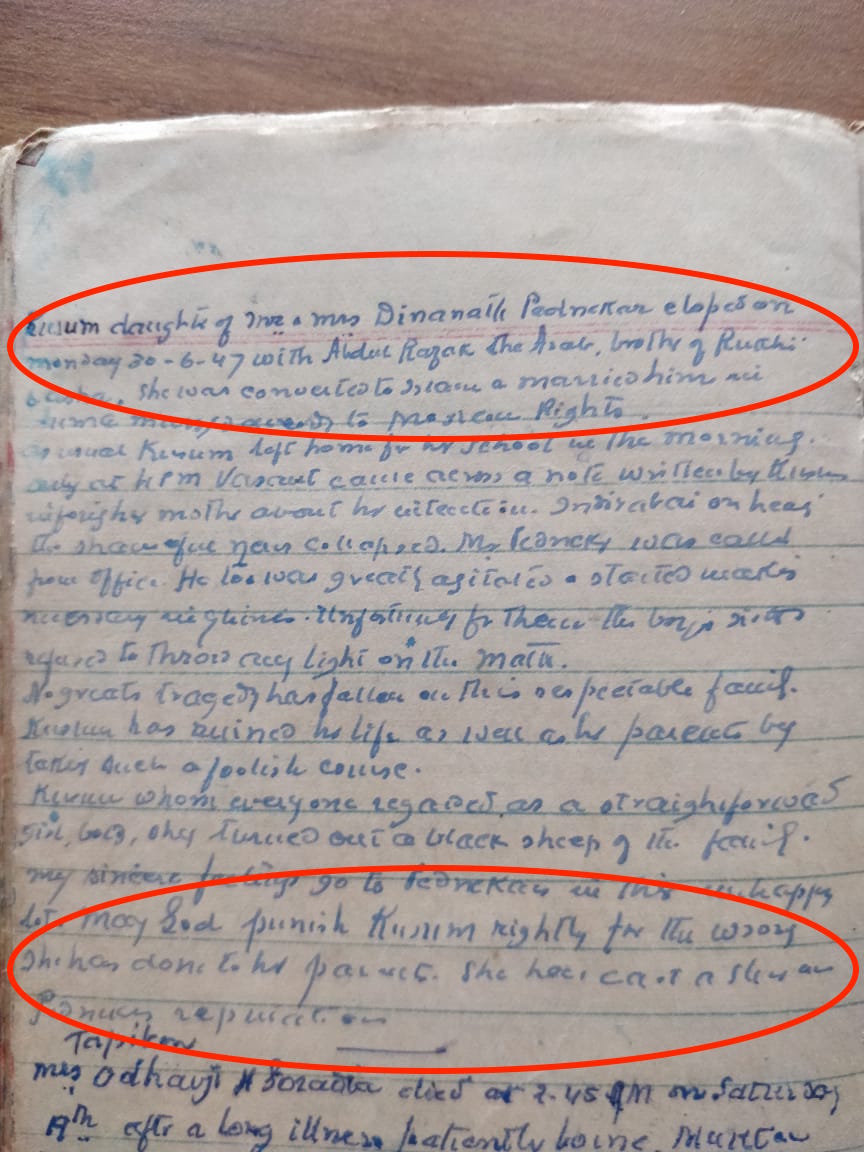 Kusum daughter of Mr & Mrs Dinanath Pednekar eloped on
Monday 30-6-47 with Abdul Razak the Arab, brother of
She was converted to Islam & married him
to Moslem Rights.
as usual Kusum left home for her school in the morning.
only at 4 PM Vasant came across a note written by Kusum
her mother about her intention. Indirabai on hearing
the shameful news collapsed. Mr Pednekar was called
from office. He too was greatly agitated & started making
necessary inquiries. Unfortunately for them the boy's sister
refused to throw any light on the matter.
A great tragedy has fallen on this respectable family.
Kusum has ruined her life as well as her parents by
taking such a foolish course.
Kusum whom everyone regarded as a straightforward
girl, turned out a black sheep of the family.
My sincere feelings go to Pednekars in this unhappy
lot. May God punish Kusum rightly for the wrong
she has done to her parents. She has cast a slur on
reputation
Mrs Odhavji died at 2.45 on Saturday
19th after a long illness patiently borne.